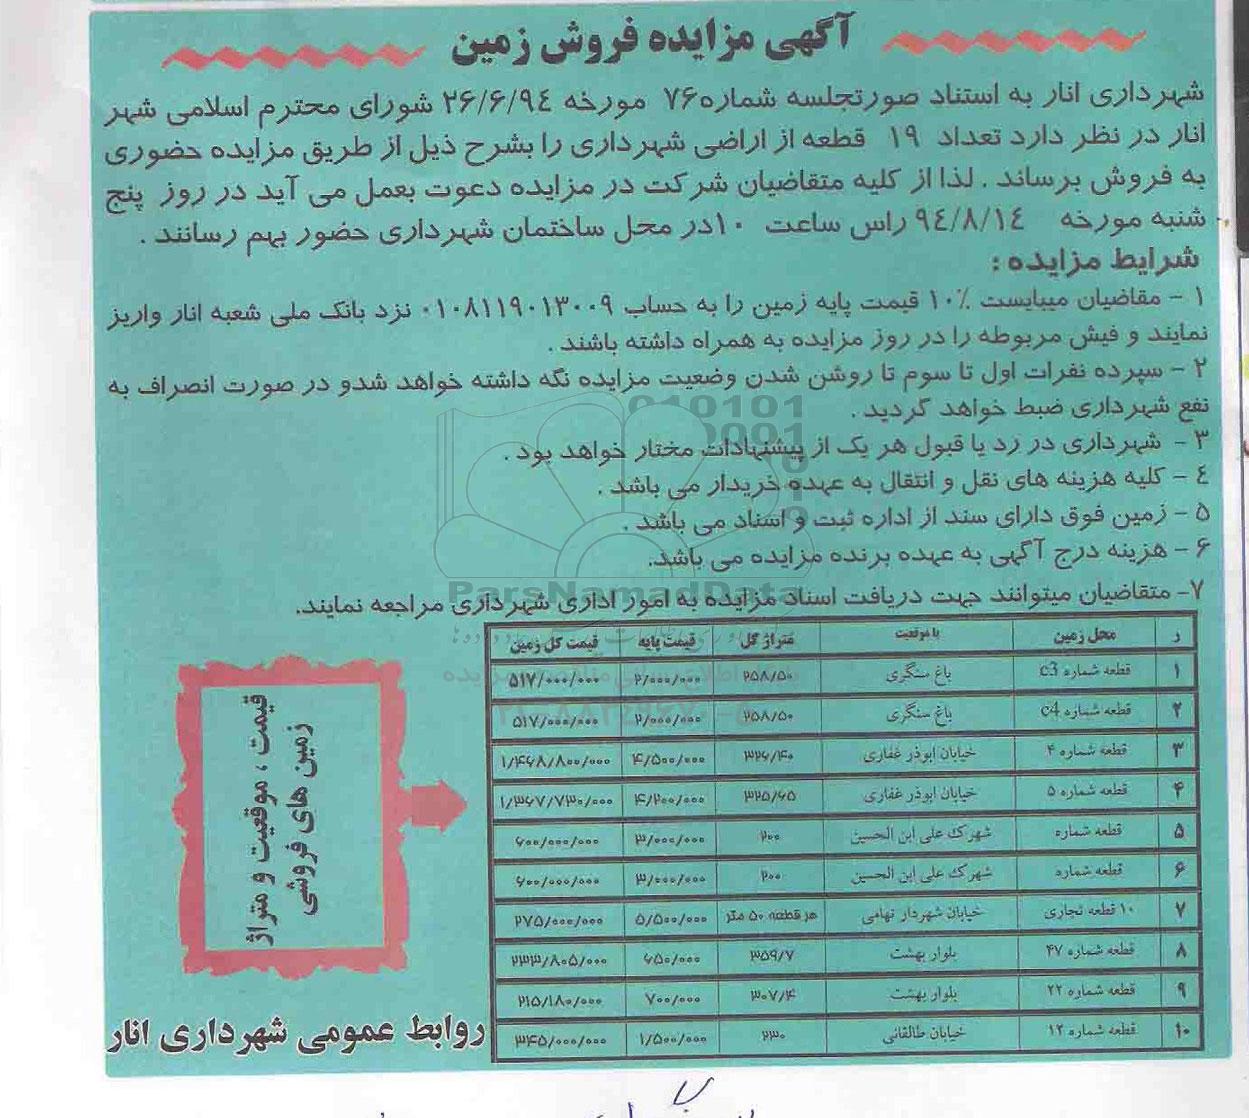 آگهی مزایده فروش زمین
شهرداری انار به استناد صورتجلسه شماره۷۶ مورخه ۲۶/۶/۹٤ شورای محترم اسلامی شهر
انار در نظر دارد تعداد ۱۹ قطعه از اراضی شهرداری را بشرح ذیل از طریق مزایده حضوری
به فروش برساند . لذا از کلیه متقاضیان شرکت در مزایده دعوت بعمل می آید در روز پنج
شنبه مورخه ۹٤/۸/۱٤ راس ساعت ۱۰در محل ساختمان شهرداری حضور بهم رسانند .
شرایط مزایده :
۱ - مقاضیان میبایست ۱۰٪ قیمت پایه زمین را به حساب ۰۱۰۸۱۱۹۰۱۳۰۰۹ نزد بانک ملی شعبه انار واریز
نمایند و فیش مربوطه را در روز مزایده به همراه داشته باشند .
۲ - سپرده نفرات اول تا سوم تا روشن شدن وضعیت مزایده نگه داشته خواهد شدو در صورت انصراف به
نفع شهرداری ضبط خواهد گردید .
۳ - شهرداری در رد یا قبول هر یک از پیشنهادات مختار خواهد بود .
٤ - کلیه هزینه های نقل و انتقال به عهده خریدار می باشد .
۵ - زمین فوق دارای سند از اداره ثبت و اسناد می باشد .
۶ - هزینه درج آگهی به عهده برنده مزایده می باشد.
ParsNamadData
۷- متقاضیان میتوانند جهت دریافت اسناد مزایده به امور اداری شهرداری مراجعه نمایند.
ر محل زمین با موقعیت متراژ کل قیمت پایه قیمت کل زمین
۱ قطعه شماره c3 باغ سنگری ۲۵۸/۵۰ ۲/۰۰۰/۰۰۰ ۵۱۷/۰۰۰/۰۰۰
۲ قطعه شماره c4 باغ سنگری ۲۵۸/۵۰ ۲/۰۰۰/۰۰۰ ۵۱۷/۰۰۰/۰۰۰
۳ قطعه شماره ۴ خیابان ابوذر غفاری ۳۲۶/۴۰ ۴/۵۰۰/۰۰۰ ۱/۴۶۸/۸۰۰/۰۰۰
۴ قطعه شماره ۵ خیابان ابوذر غفاری ۳۲۵/۶۵ ۴/۲۰۰/۰۰۰ ۱/۳۶۷/۷۳۰/۰۰۰
۵ قطعه شماره شهرک علی ابن الحسین ۲۰۰ ۳/۰۰۰/۰۰۰ ۶۰۰/۰۰۰/۰۰۰
۶ قطعه شماره شهرک علی ابن الحسین ۲۰۰ ۳/۰۰۰/۰۰۰ ۶۰۰/۰۰۰/۰۰۰
۷ ۱۰ قطعه تجاری خیابان شهردار تهامی هر قطعه ۵۰ متر ۵/۵۰۰/۰۰۰ ۲۷۵/۰۰۰/۰۰۰
۸ قطعه شماره ۴۷ بلوار بهشت ۳۵۹/۷ ۶۵۰/۰۰۰ ۲۳۳/۸۰۵/۰۰۰
۹ قطعه شماره ۲۲ بلوار بهشت ۳۰۷/۴ ۷۰۰/۰۰۰ ۲۱۵/۱۸۰/۰۰۰
۱۰ قطعه شماره ۱۲ خیابان طالقانی ۲۳۰ ۱/۵۰۰/۰۰۰ ۳۴۵/۰۰۰/۰۰۰
قیمت ، موقعیت و متراژ
زمین های فروشی
روابط عمومی شهرداری انار